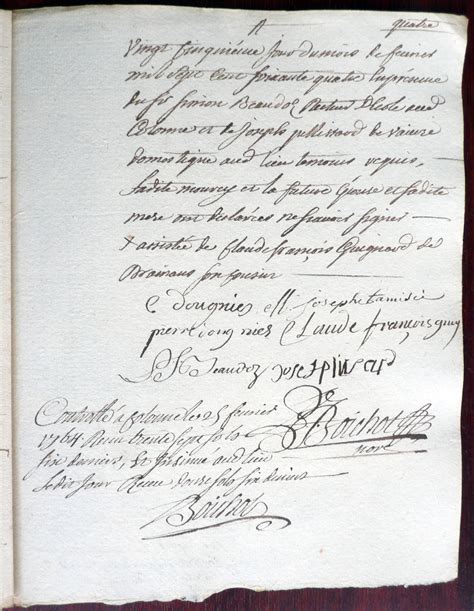 A quatre
vingt cinquieme jour du mois de fevrier
mil sept cent soixante quatre en presence
du Sr Simon Beaudoz Recteur d'école aud
Colonne et de joseph pellissard de vaivre
domestique aud lieu temoins requis,
ladite mourey et la future épouse et sadite
mere ont declarées ne scavoir signer
+ assistée de Claude françois Guignard de
Bramans son
C Dougnies josephe tamisié
pierre Claude françois guy
S Beaudoz Josep
Controllé a Colonne le 25 fevrier
1764 Receu trente sept sols
six deniers, et Insinué aud lieu
ledit jour Receu douze sols six deniers
Boichot
nore
Boichot